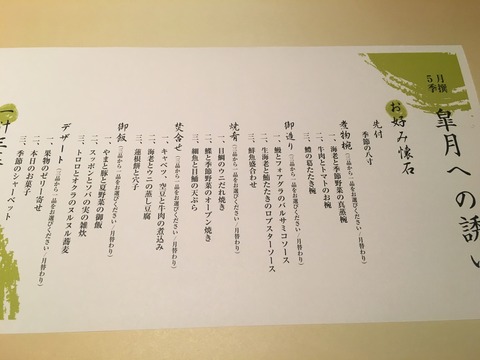 5月
季撰
皐月への誘い
お好み懐石
先付
季節の八寸
煮物椀（三品から一品をお選びください/月替わり）
一、海老と季節野菜の真蒸椀
二、牛肉とトマトのお椀
三、鱧の葛たたき椀
御造り（三品から一品をお選びください/月替わり）
一、鮑とフォアグラのバルサミコソース
二、生海老と鮪たたきのロブスターソース
三、鮮魚盛合わせ
焼肴（三品から一品をお選びください/月替わり）
一、目鯛のウニだれ焼き
二、鰈と季節野菜のオーブン焼き
三、細魚と目鯒の天ぷら
焚合せ（三品から一品をお選びください/月替わり）
一、キャベツ、空豆と牛肉の煮込み
二、海老とウニの蒸し豆腐
三、蓮根餅と穴子
御飯（三品から一品をお選びください/月替わり）
一、やまと豚と夏野菜の御飯
二、スッポンとソバの実の雑炊
三、トロロとオクラのヌルヌル蕎麦
デザート（三品から一品をお選びください/月替わり）
一、果物のゼリー寄せ
二、本日のお菓子
三、季節のシャーベット